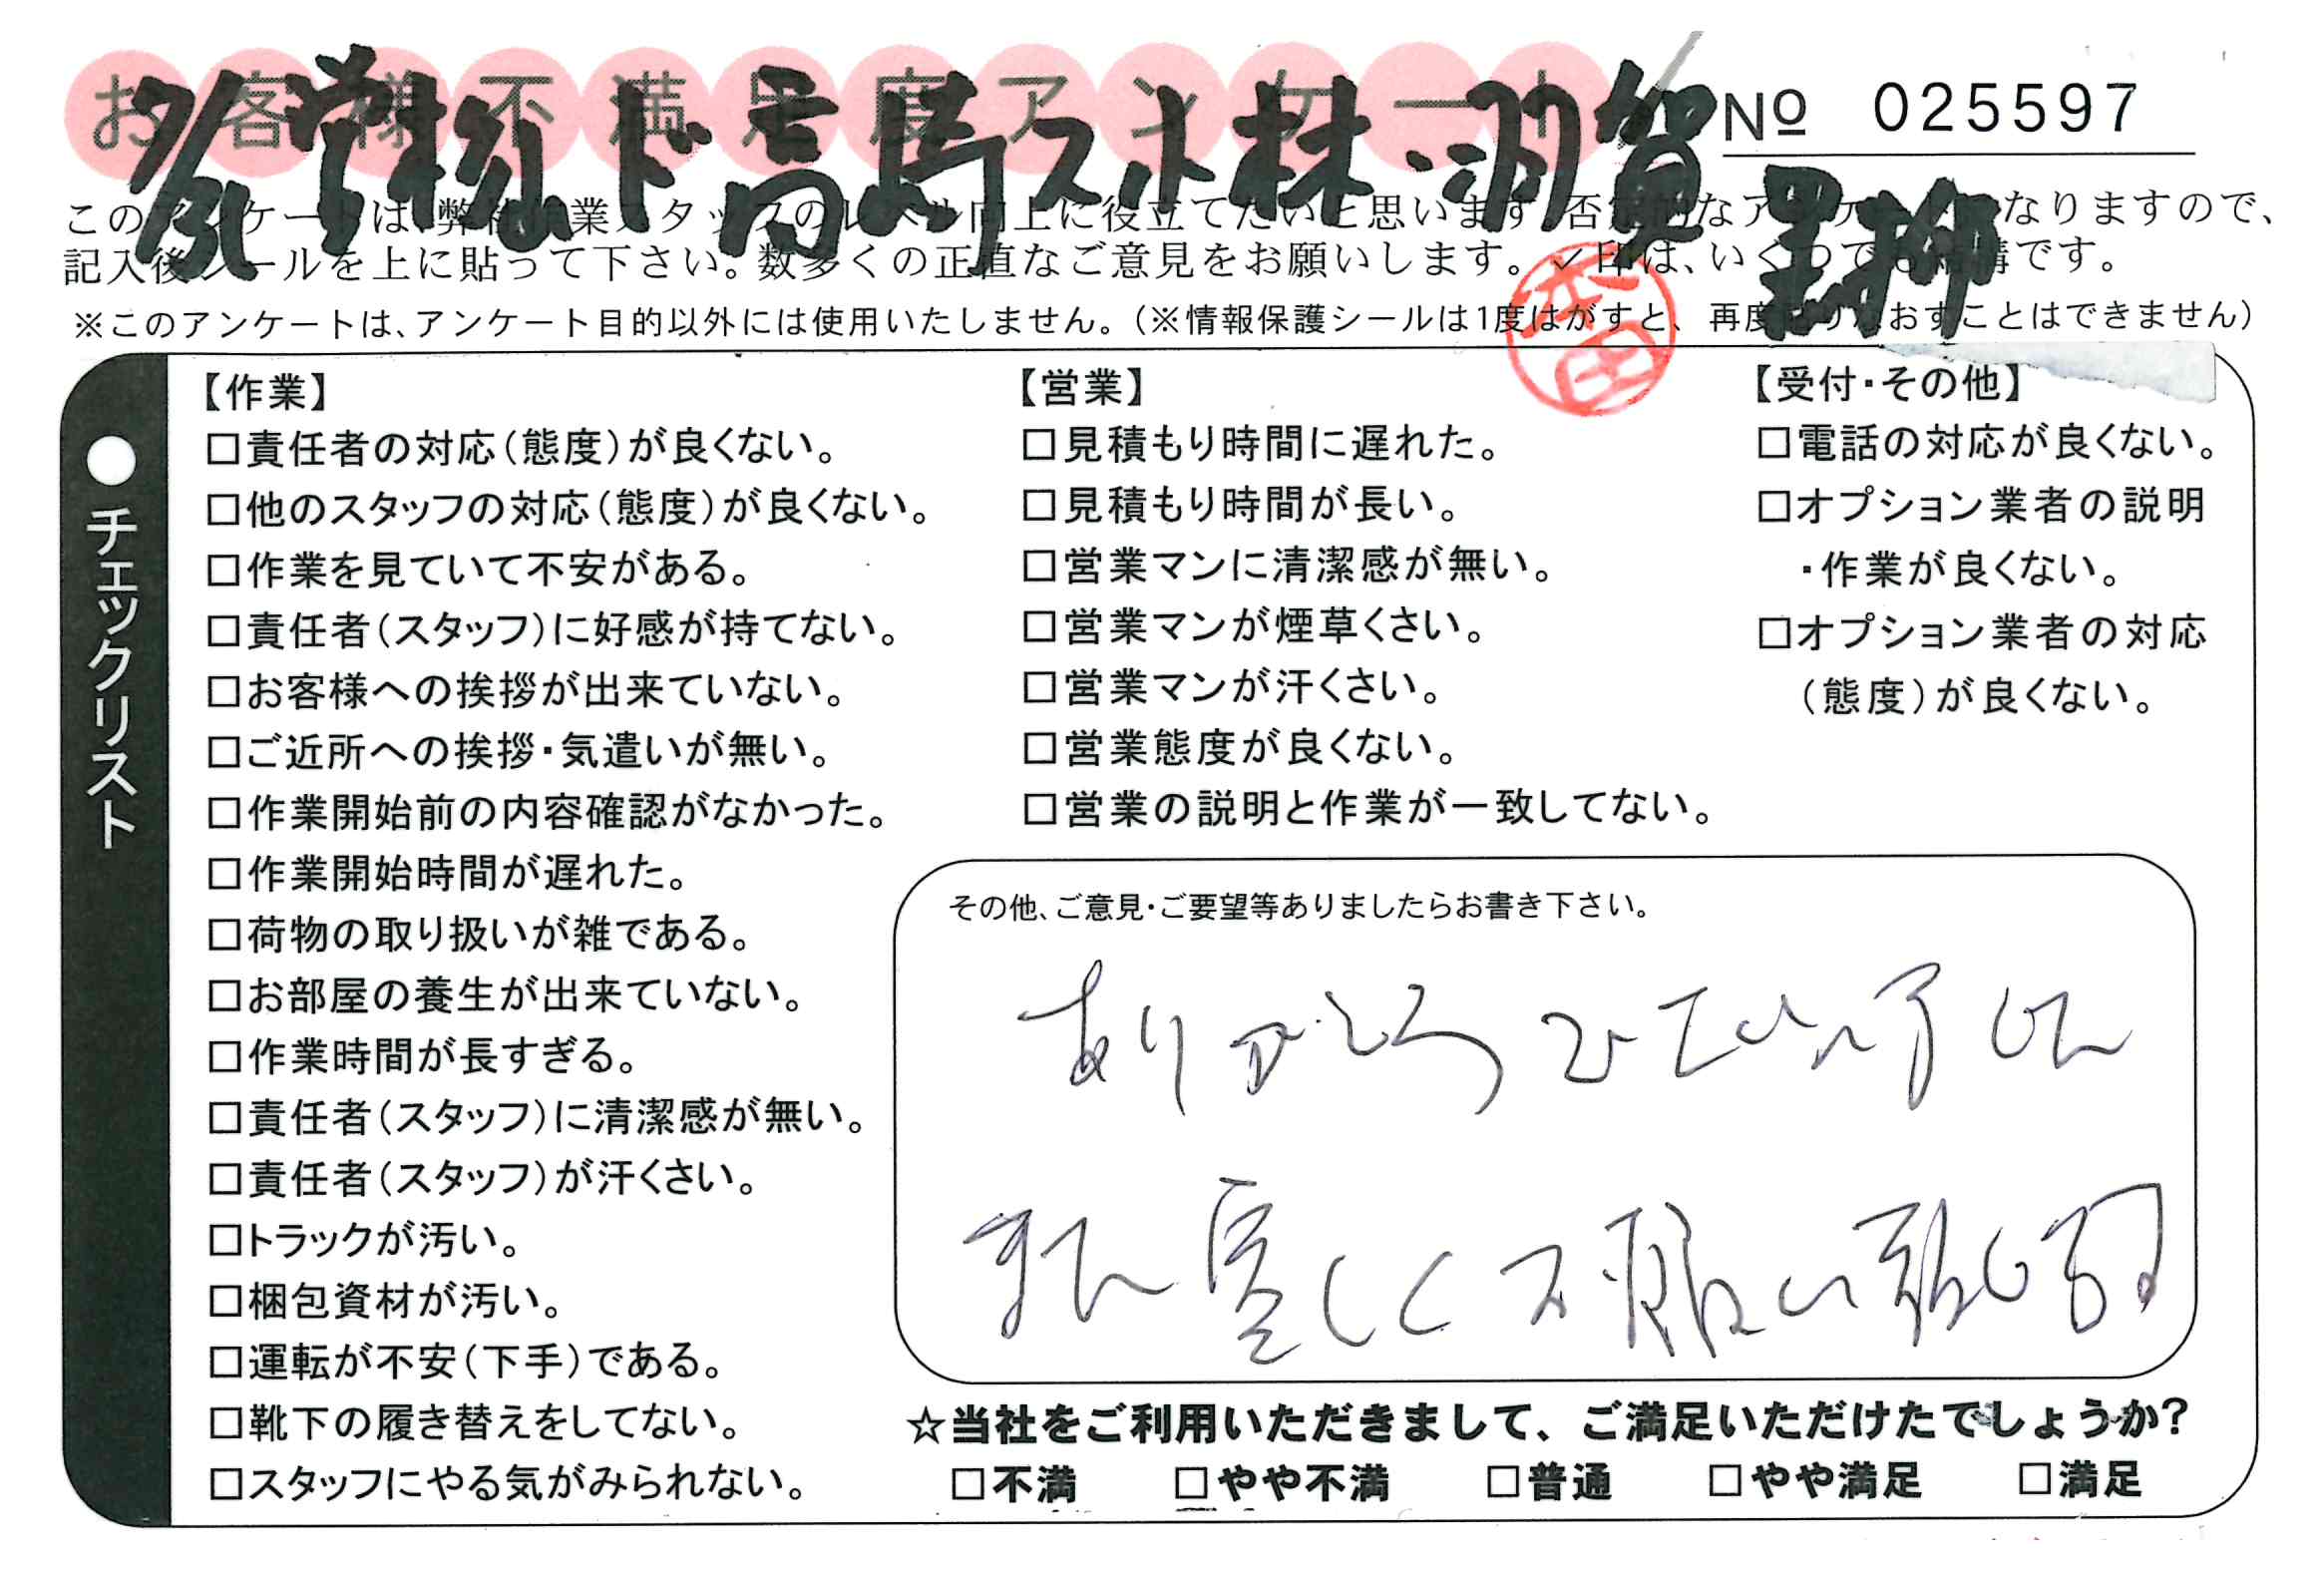 お客様不満足度アンケート
No 025597
このアンケートは、弊社作業スタッフのレベル向上に役立てたいと思います。否定的なアンケートになりますので、
記入後シールを上に貼って下さい。数多くの正直なご意見をお願いします。✓印は、いくつでも結構です。
※このアンケートは、アンケート目的以外には使用いたしません。(※情報保護シールは1度はがすと、再度貼りなおすことはできません)
●チェックリスト
【作業】
□責任者の対応(態度)が良くない。
□他のスタッフの対応(態度)が良くない。
□作業を見ていて不安がある。
□責任者(スタッフ)に好感が持てない。
□お客様への挨拶が出来ていない。
□ご近所への挨拶・気遣いが無い。
□作業開始前の内容確認がなかった。
□作業開始時間が遅れた。
□荷物の取り扱いが雑である。
□お部屋の養生が出来ていない。
□作業時間が長すぎる。
□責任者(スタッフ)に清潔感が無い。
□責任者(スタッフ)が汗くさい。
□トラックが汚い。
□梱包資材が汚い。
□運転が不安(下手)である。
□靴下の履き替えをしてない。
□スタッフにやる気がみられない。
【営業】
□見積もり時間に遅れた。
□見積もり時間が長い。
□営業マンに清潔感が無い。
□営業マンが煙草くさい。
□営業マンが汗くさい。
□営業態度が良くない。
□営業の説明と作業が一致してない。
【受付・その他】
□電話の対応が良くない。
□オプション業者の説明
・作業が良くない。
□オプション業者の対応
(態度)が良くない。
その他、ご意見・ご要望等ありましたらお書き下さい。
ありがとうございました
また宜しくお願い致します
☆当社をご利用いただきまして、ご満足いただけたでしょうか?
□不満 □やや不満 □普通 □やや満足 □満足